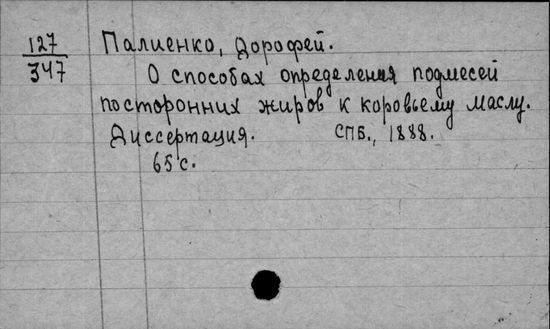 127
347
Палиенко, Дорофей.
О способах определения подмесей
посторонних жиров к коровьему маслу.
Диссертация. СПБ., 1888.
65 с.